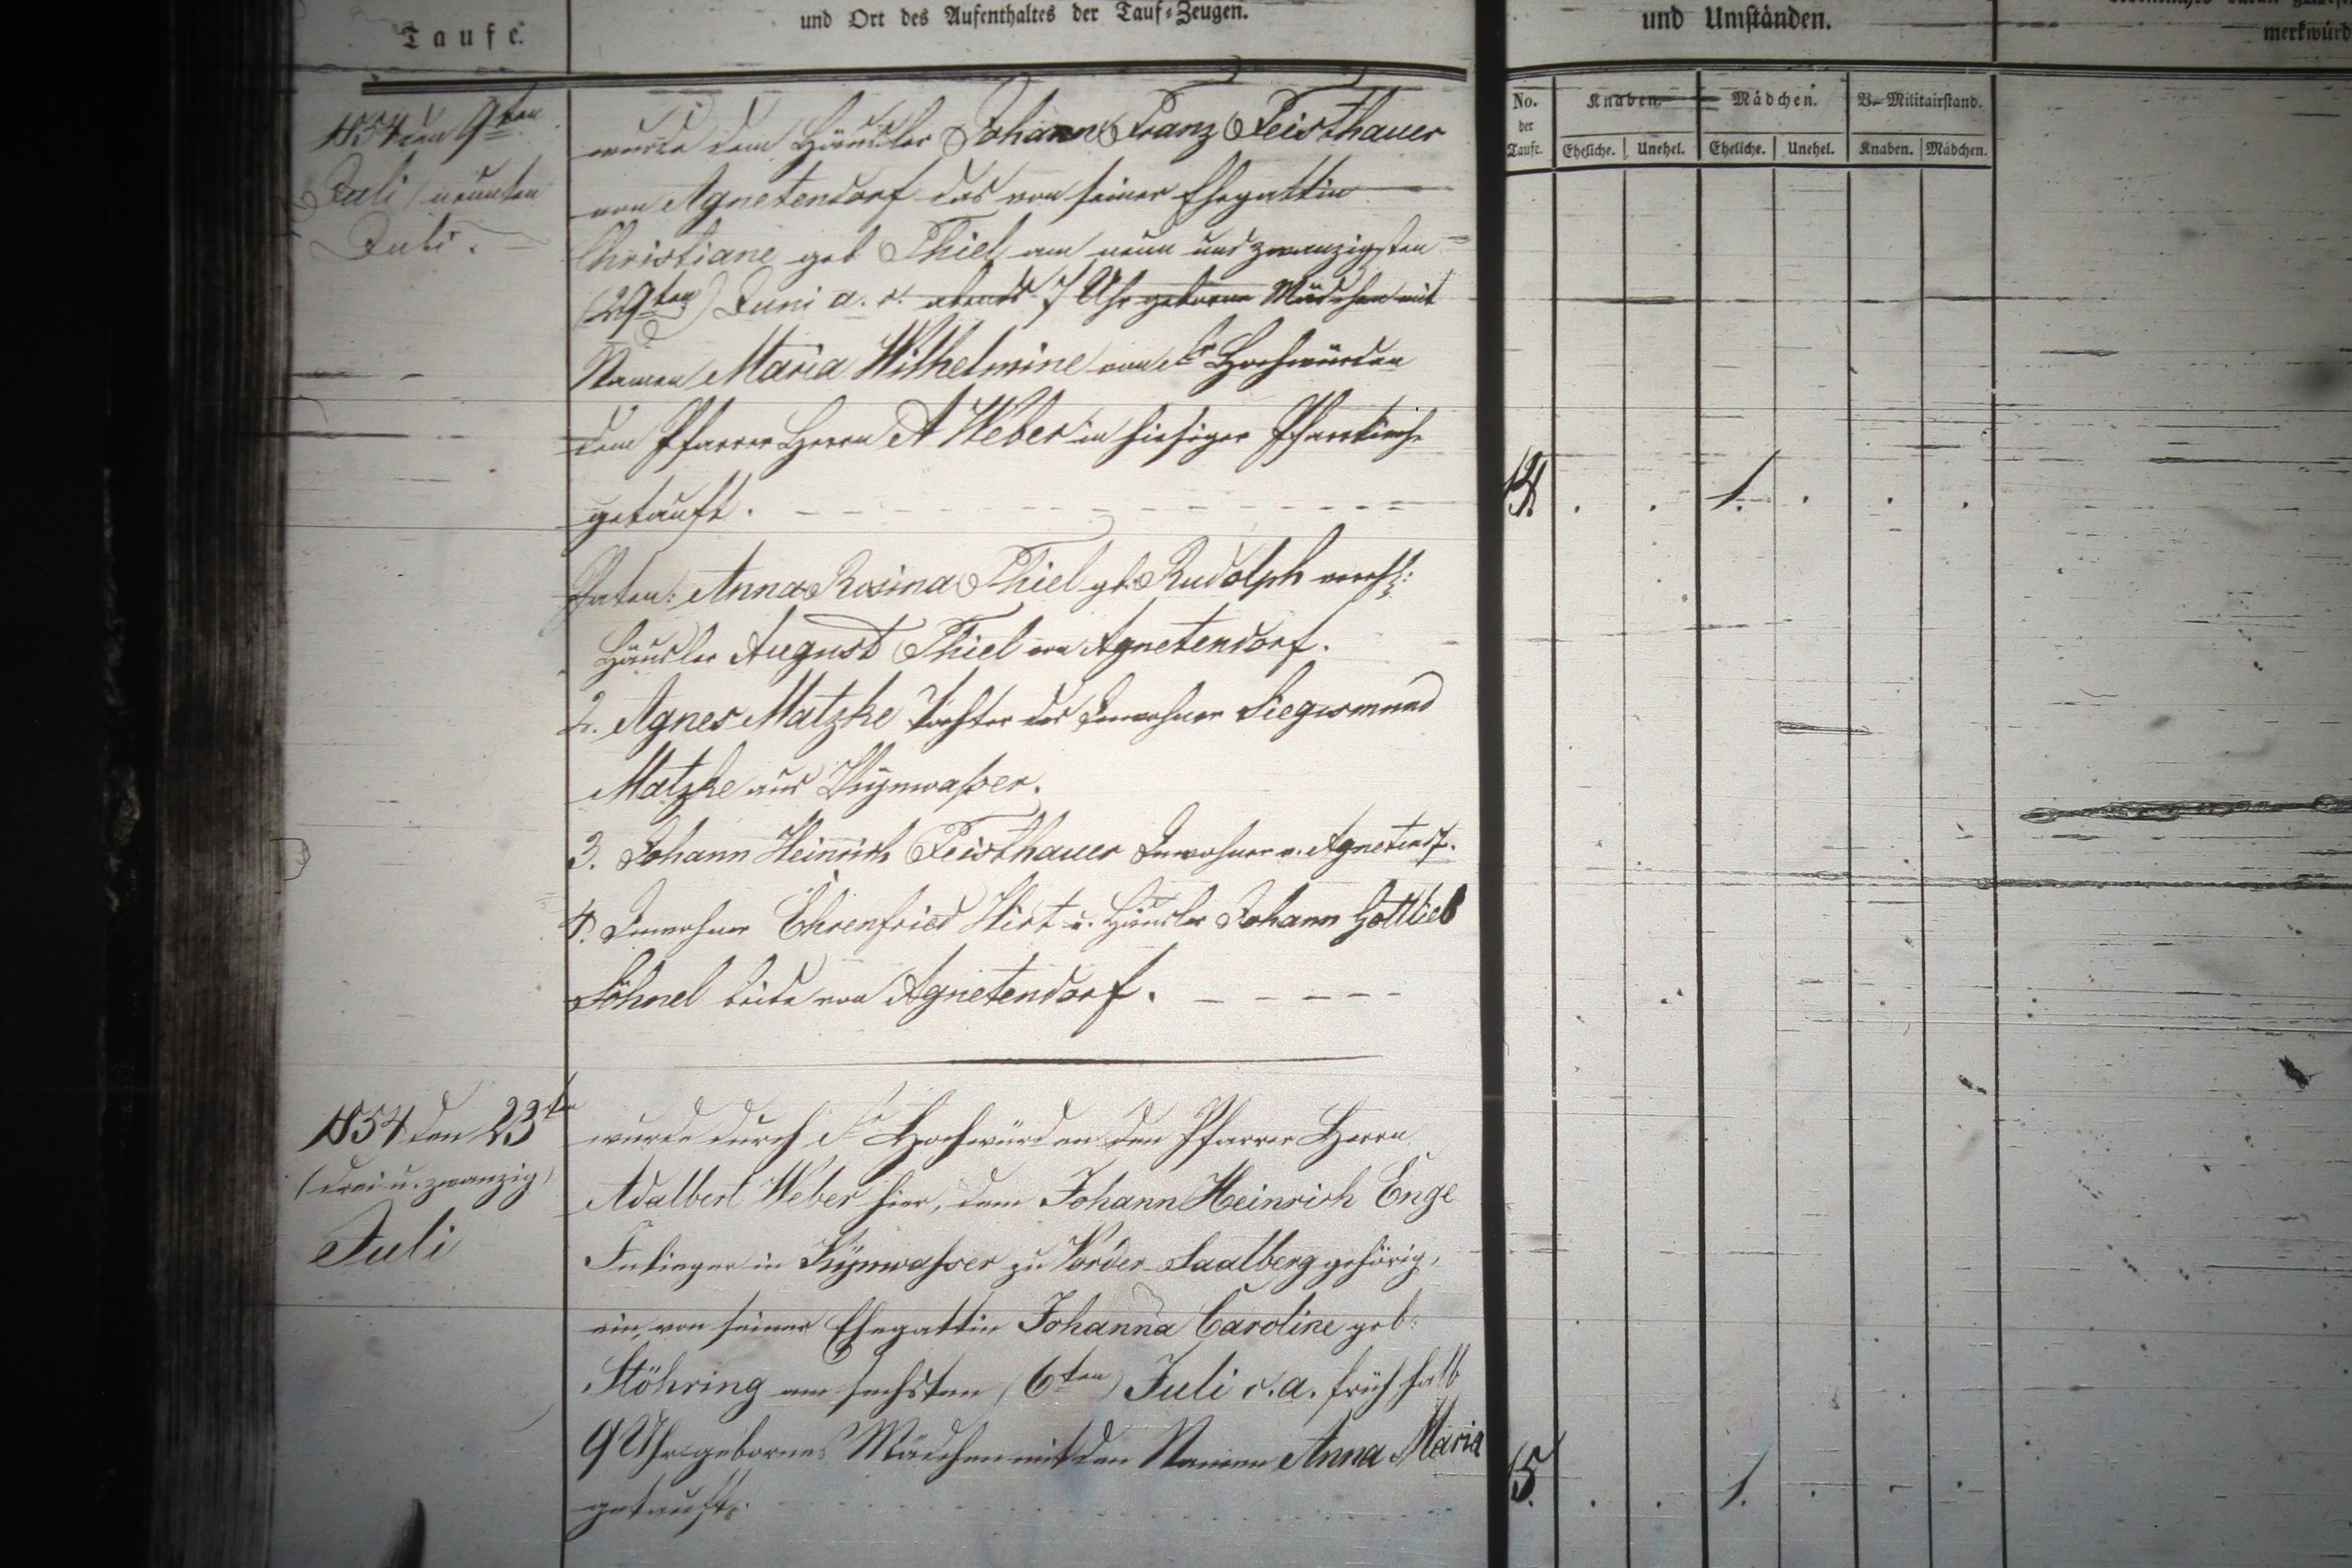 Taufe.
und Ort des Aufenthaltes der Tauf-Zeugen.
und Umständen.
merkwürd
No. der Taufe.
Knaben.
Mädchen.
B. Militairstand.
Eheliche.
Unehel.
Eheliche.
Unehel.
Knaben.
Mädchen.
1854 den 9ten
Juli (neunten
Juli.
wurde dem Häusler Johann Franz Feisthauer
von Agnetendorf das von seiner Ehegattin
Christiane geb Thiel am neun und zwanzigsten
(29ten) Juni a. c. abends 7 Uhr geborene Mädchen mit
Namen Maria Wilhelmine von Sr Hochwürden
dem Pfarrer Herrn A Weber in hiesiger Pfarrkirche
getauft.
14. . . 1. . . .
Paten: Anna Rosina Thiel gb. Rudolph verehl:
Häusler August Thiel von Agnetendorf.
2. Agnes Matzke Tochter des Inwohner Siegismund
Matzke aus Kynwasser.
3. Johann Heinrich Feisthauer Inwohner v. Agnetendf.
4. Inwohner Ehrenfried Hirt u. Häusler Johann Gottlieb
Söhnel beide von Agnetendorf.
1854 den 23t
(drei u. zwanzig)
Juli
wurde durch Sr Hochwürden den Pfarrer Herrn
Adalbert Weber hier, dem Johann Heinrich Enge
Inlieger in Kynwasser zu Vorder Saalberg gehörig,
ein, von seiner Ehegattin Johanna Caroline geb:
Stöhring am sechsten (6ten) Juli c. a. früh halb
9 Uhr gebornes Mädchen mit den Namen Anna Maria
getauft.
15. . . 1. . . .